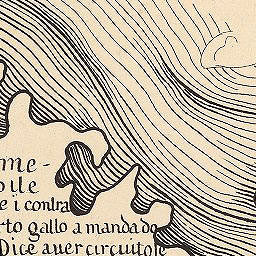 me-
bile
e i contra
rto gallo a mandado
Dice aver circuito se